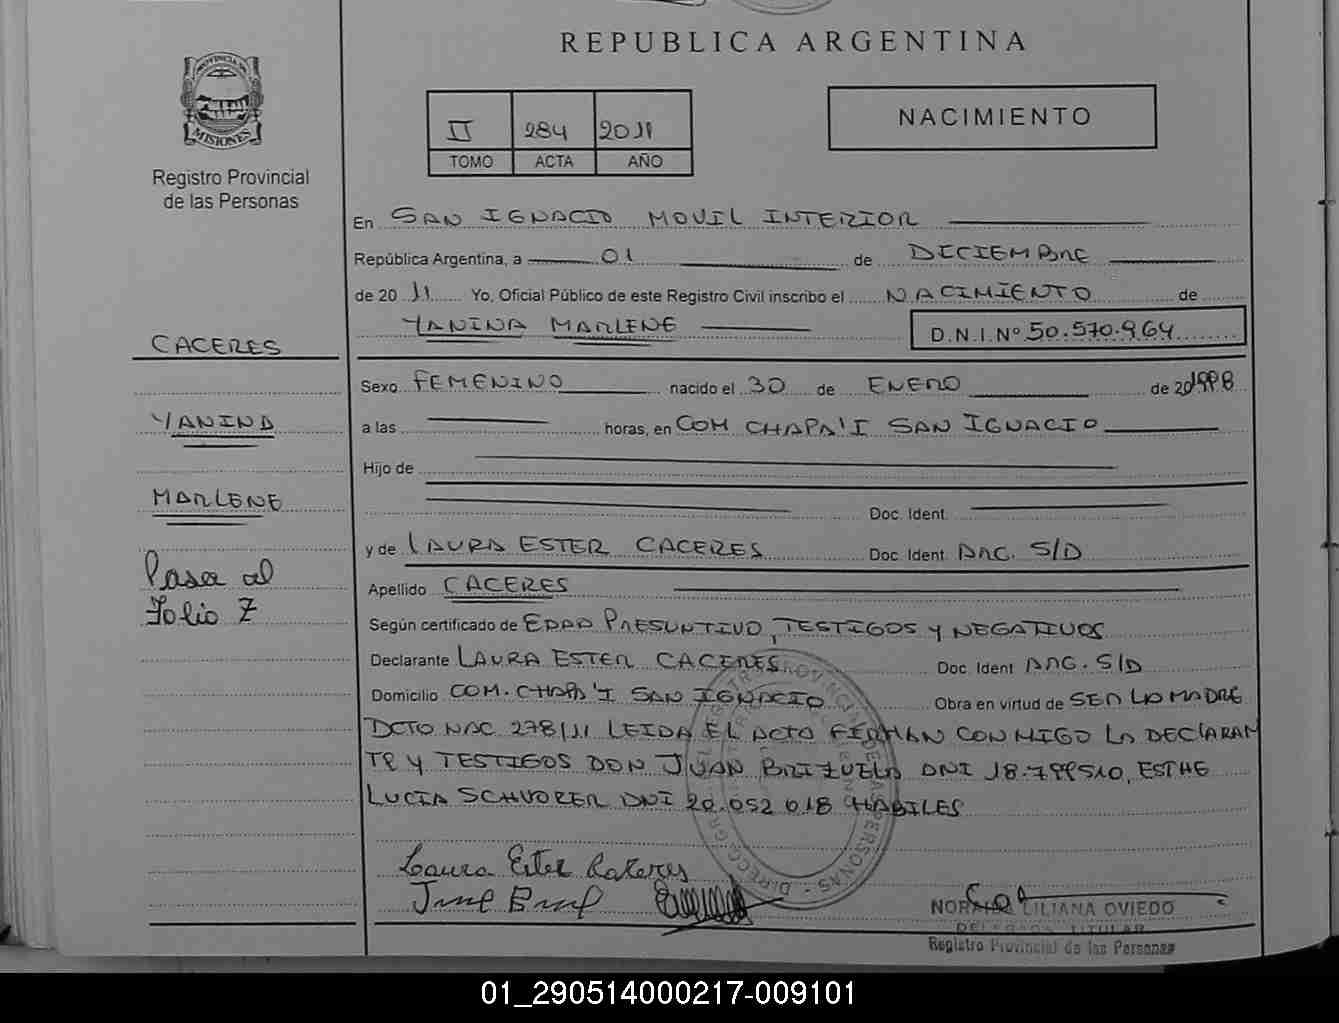 REPUBLICA ARGENTINA
PROVINCIA DE
MISIONES
Registro Provincial
de las Personas
II 284 2011
TOMO ACTA AÑO
NACIMIENTO
En SAN IGNACIO MOVIL INTERIOR
República Argentina, a 01 de DICIEMBRE
de 20 11 Yo, Oficial Público de este Registro Civil inscribo el NACIMIENTO de
YANINA MARLENE D.N.I.Nº 50.570.964
CACERES
YANINA
MARLENE
Pasa al
Folio Z
Sexo FEMENINO nacido el 30 de ENERO de 201998
a las horas, en COM CHAPA'I SAN IGNACIO
Hijo de
Doc. Ident.
y de LAURA ESTER CACERES Doc. Ident. ARG. S/D
Apellido CACERES
Según certificado de EDAD PRESUNTIVO, TESTIGOS Y NEGATIVOS
Declarante LAURA ESTER CACERES Doc. Ident ARG. S/D
Domicilio COM. CHAPA'I SAN IGNACIO Obra en virtud de SER LA MADRE
DCTO NAC 278/11 LEIDA EL ACTO FIRMAN CONMIGO LA DECLARAN
TE Y TESTIGOS DON JUAN BRIZUELA DNI 18.799510, ESTHE
LUCIA SCHVORER DNI 20.052.018 HABILES
Laura Ester Caceres
NORAIDA LILIANA OVIEDO
DELEGADA TITULAR
Registro Provincial de las Personas
01_290514000217-009101